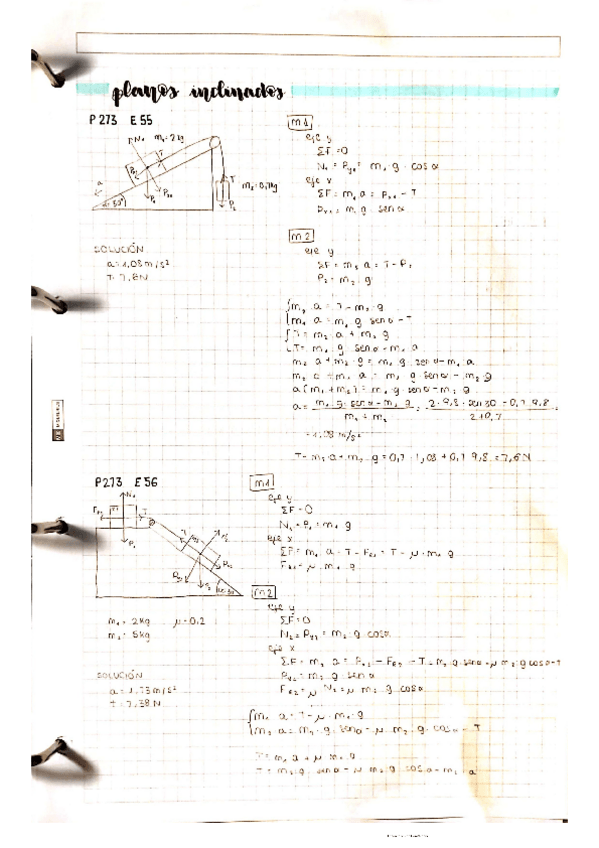 planos inclinados
P273 E55
N₁ m₁=2kg
T
m₂=0,7kg
a
α=30°
P₁
T
P₂
SOLUCIÓN
a=1,08m/s²
T=7,6N
m1
eje y
ΣF=0
N₁=Py₁= m₁·g·cosα
eje x
ΣF=m₁a=Px₁-T
Px₁=m₁·g·senα
m2
eje y
ΣF=m₂·a=T-P₂
P₂=m₂·g
m₂·a=T-m₂·g
m₁·a=m₁·g·senα-T
T=m₂·a+m₂·g
T=m₁·g·senα-m₁·a
m₂·a+m₂·g=m₁·g·senα-m₁·a
m₂·a+m₁·a=m₁·g·senα-m₂·g
a(m₁+m₂)=m₁·g·senα-m₂·g
2·9,8·sen30-0,7·9,8
2+0,7
=1,08m/s²
T=m₂·a+m₂·g=0,7·1,08+0,7·9,8=7,6N
P273 E56
m₁=2kg μ=0.2
m₂=5kg
SOLUCIÓN
a=1,73m/s²
T=7,38N
m1
eje y
ΣF=0
N₁=P₁=m₁·g
eje x
ΣF=m₁·a=T-FR₁=T-μ·m₁·g
FR₁=μ·m₁·g
m2
eje y
ΣF=0
N₂=Py₂=m₂·g·cosα
eje x
ΣF=m₂·a=Px₂-FR₂-T=m₂·g·senα-μ·m₂·g·cosα-T
Px₂=m₂·g·senα
FR₂=μ·N₂=μ·m₂·g·cosα
m₁·a=T-μ·m₁·g
m₂·a=m₂·g·senα-μ·m₂·g·cosα-T
T=m₁·a+μ·m₁·g
T=m₂·g·senα-μ·m₂·g·cosα-m₂·a